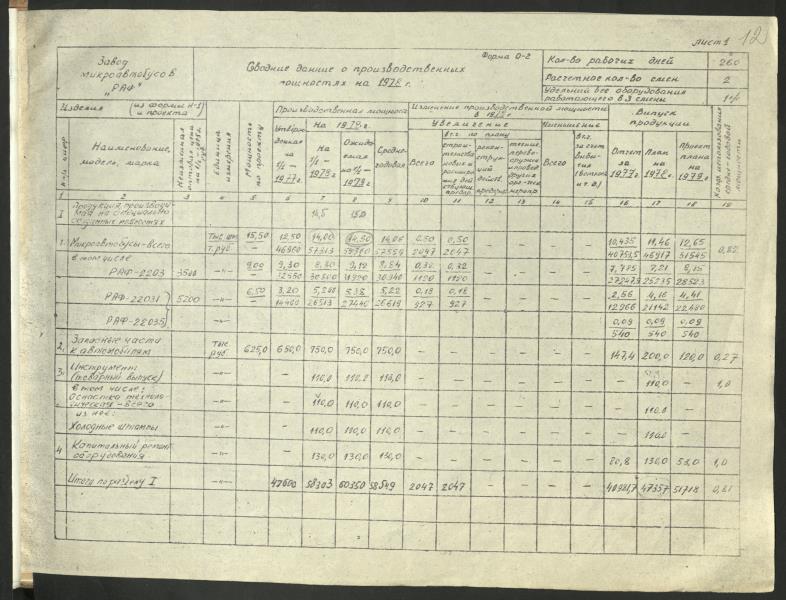 Лист 1 12
Завод
микроавтобусов
"РАФ"
Сводные данные о производственных
мощностях на 1978 г.
Форма 0-2
Кол-во рабочих дней 260
Расчетное кол-во смен 2
Удельный вес оборудования
работающего в 3 смены
Изделия (из формы Н-1) и проекта
Производственная мощность
Изменение производственной мощности
в 1978 г.
Выпуск
продукции
Наименование,
модель, марка
Единица измерения
Мощность по проекту
Утвержденная на 1/I-1977г
На 1978 г.
На 1/I-1978г
Ожидаемая на 1/I-1979г
Среднегодовая
Увеличение
Всего
в т.ч. по плану
Уменьшение
Всего
Отчет за 1977 г
План на 1978 г.
Проект плана на 1979 г
1 2 3 4 5 6 7 8 9 10 11 12 13 14 15 16 17 18 19
I Продукция, производимая на специально созданных мощностях 14,5 15,0
1. Микроавтобусы-всего тыс шт 15,50 12,50 14,00 14,50 14,06 0,50 0,50 – – – – 10,435 11,46 12,65 0,82
т.руб. – 46900 57313 59360 57559 2047 2047 40753,5 46917 51545
в том числе
РАФ-2203 3500 -"- 9,00 9,30 8,80 9,12 8,84 0,32 0,32 – – – – 7,785 7,21 8,15
– 32550 30800 31920 30940 1120 1120 27247,5 25235 28523
РАФ-22031 5200 -"- 6,50 3,20 5,20 5,38 5,22 0,18 0,18 2,56 4,16 4,41
– 14400 26513 27440 26619 927 927 12966 21142 22480
РАФ-22035 -"- 0,09 0,09 0,09
540 540 540
2. Запасные части к автомобилям тыс руб. 625,0 650,0 750,0 750,0 750,0 – – – – – – 147,4 200,0 120,0 0,27
3. Инструмент (товарный выпуск) -"- – – 110,0 110,0 110,0 – – – – – – – 110,0 – 1,0
в том числе:
Оснастка технологическая-всего -"- – – 110,0 110,0 110,0 – – – – – – 110,0
из нее:
Холодные штампы -"- – – 110,0 110,0 110,0 – – – – – – 110,0
4 Капитальный ремонт оборудования -"- – – 130,0 130,0 130,0 – – – – – – 80,8 130,0 53,0 1,0
Итого по разделу I 47600 58303 60350 58549 2047 2047 – – – – 40981,7 47357 51718 0,81